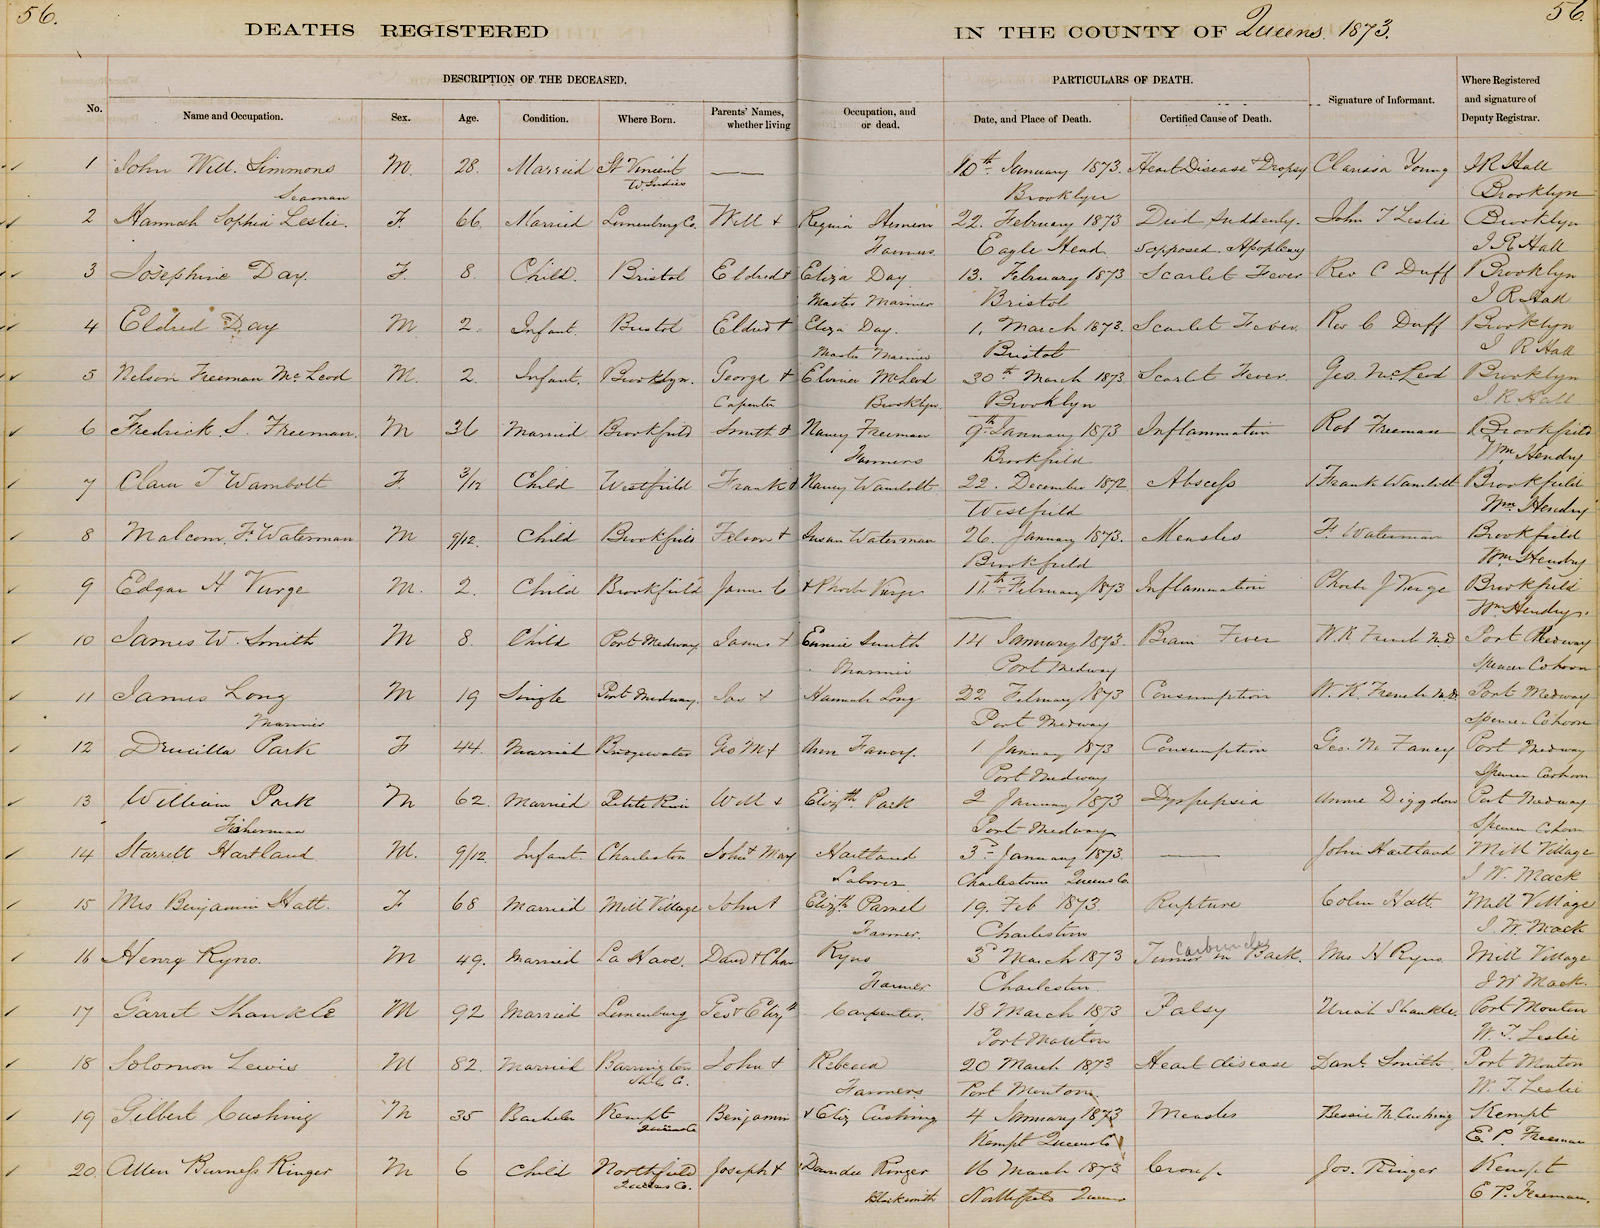 56. 56.
DEATHS REGISTERED IN THE COUNTY OF Queens 1873.
DESCRIPTION OF THE DECEASED. PARTICULARS OF DEATH. Where Registered
and signature of
Deputy Registrar.
No. Name and Occupation. Sex. Age. Condition. Where Born. Parents' Names, whether living Occupation, and or dead. Date, and Place of Death. Certified Cause of Death. Signature of Informant.
1 John Will. Simmons M. 28. Married St Vincent — 10th January 1873. Heart Disease & Dropsy Clarissa Young J R Hall
Seaman W. Indies Brooklyn Brooklyn
2 Hannah Sophia Leslie. F. 66. Married Lunenburg Co. Will + Regina 22. February 1873 Died Suddenly. John T Leslie Brooklyn
Farmers Eagle Head. Supposed Apoplexy J R Hall
3 Josephine Day. F. 8. Child. Bristol Eldred + Eliza Day 13. February 1873 Scarlet Fever Rev C Duff Brooklyn
Master Mariner Bristol J R Hall
4 Eldred Day M 2. Infant. Bristol Eldred + Eliza Day. 1. March 1873. Scarlet Fever. Rev C Duff Brooklyn
Master Mariner Bristol J R Hall
5 Nelson Freeman McLeod M. 2. Infant. Brooklyn. George + McLeod 30th March 1873 Scarlet Fever. Geo. McLeod Brooklyn
Carpenter Brooklyn. Brooklyn J R Hall
6 Fredrick S. Freeman. M 36 Married Brookfield Smith + Nancy Freeman 9th January 1873 Inflammation Rob Freeman Brookfield
Farmers Brookfield Wm Hendry
7 Clara T Wambolt F. 3/12 Child Westfield Frank + Nancy Wambolt 22. December 1872 Abscess Frank Wambolt Brookfield
Westfield Wm Hendry
8 Malcom. F. Waterman M 9/12. Child Brookfield + Susan Waterman 26. January 1873. Measles F. Waterman Brookfield
Brookfield Wm Hendry
9 Edgar H Virge M. 2. Child Brookfield James C + Phoebe Virge 11th February 1873 Inflammation Phoebe J Virge Brookfield
— Wm Hendry.
10 James W. Smith M 8. Child Port Medway James + Smith 14 January 1873. Brain Fever W. K French M.D. Port Medway
Mariner Port Medway Spencer Cohoon
11 James Long M 19 Single Port Medway. Jas + Hannah Long 22 February 1873 Consumption W. K. French M.D. Port Medway
Mariner Port Medway Spencer Cohoon
12 Drucilla Park F 44. Married Bridgewater Geo M + Ann Fancy. 1 January 1873 Consumption Geo. M. Fancy Port Medway
Port Medway Spencer Cohoon
13 William Park M 62. Married Petite Riv Will + Elizth Park 2 January 1873 Dyspepsia Annie Diggdon Port Medway
Fisherman Port Medway Spencer Cohoon
14 Starrett Hartland M. 9/12 Infant. Charleston John + Mary Hartland 3rd January 1873. — John Hartland Mill Village
Laborer Charlestown Queens Co. J W. Mack
15 Mrs Benjamin Hatt. F 68 Married Mill Village John + Elizth 19. Feb 1873. Rupture Colin Hatt. Mill Village
Farmer. Charleston J. W. Mack
16 Henry Ryno. M 49. Married La Have. David + Ryno 3rd March 1873 Tumor in Back. Carbuncle Mrs H Ryno Mill Village
Farmer Charleston. J W Mack.
17 Garret Shankle M 92 Married Lunenburg Geo + Elizth Carpenter. 18 March 1873 Palsy Uriah Shankle. Port Mouton
Port Mouton W. T. Leslie
18 Solomon Lewis M 82. Married Barrington John + Rebecca 20 March 1873 Heart disease Danl. Smith Port Mouton
Farmers Port Mouton W. T. Leslie
19 Gilbert Cushing M 35 Bachelor Kempt Benjamin + Eliz Cushing 4 January 1873 Measles Bessie M. Cushing Kempt
Queens Co Kempt Queens Co E. P. Freeman
20. Allen Burness Ringer M 6 Child Northfield Joseph + Ringer 16 March 1873 Croup Jos. Ringer Kempt
Queens Co. Blacksmith Northfield Queens E P. Freeman.